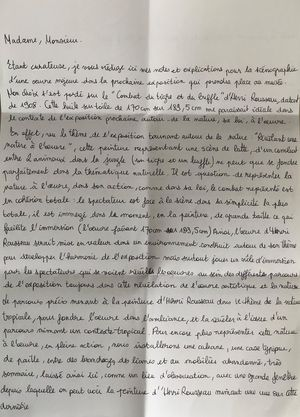 Madame, Monsieur.
Étant curateuse, je vous rédige ici mes notes et explications pour la scénographie
d'une œuvre majeure dans la prochaine exposition qui prendra place au musée.
Mon choix s'est porté sur le "Combat de tigre et de buffle" d'Henri Rousseau, datant
de 1908. Cette huile sur toile de 170cm sur 189,5cm me paraissait idéale dans
le contexte de l'exposition prochaine autour de la nature, sa loi, à l'œuvre.
En effet, sur le thème de l'exposition tournant autour de la nature "
nature à l'œuvre", cette peinture représentant une scène de lutte, d'un combat
entre 2 animaux dans la jungle (un tigre et un buffle) ne peut que se fondre
parfaitement dans la thématique naturelle. Il est question de représenter la
nature à l'œuvre, dans son action, comme dans sa loi, le combat représenté est
en cohésion totale : le spectateur est face à la scène dans sa simplicité la plus
totale, il est immergé dans le moment, en la peinture, de grande taille ce qui
facilite l'immersion (l'œuvre faisant 170cm sur 189,5cm) Ainsi, l'œuvre d'Henri
Rousseau serait mise en valeur dans un environnement construit autour de son thème
pour développer l'harmonie de l'exposition mais surtout jouer un rôle d'immersion
pour les spectateurs qui se voient les œuvres au sein des différents parcours
de l'exposition toujours dans cette révélation de l'œuvre artistique et la nature.
Le parcours précis menant à la peinture d'Henri Rousseau dans le thème de la nature
tropicale, pour fondre l'œuvre dans l'ambiance, et la révéler à l'issue d'un
parcours mimant un contexte tropical. Pour encore plus représenter cette nature
à l'œuvre, en pleine action, nous installerons une cabane, une case typique,
de paille, entre des branchages de lianes et au mobilier abandonné, très
sommaire, laissé ainsi ici, comme un lieu d'observation, avec une grande fenêtre
depuis laquelle on peut voir la peinture d'Henri Rousseau mimant une vue sur cette
dernière